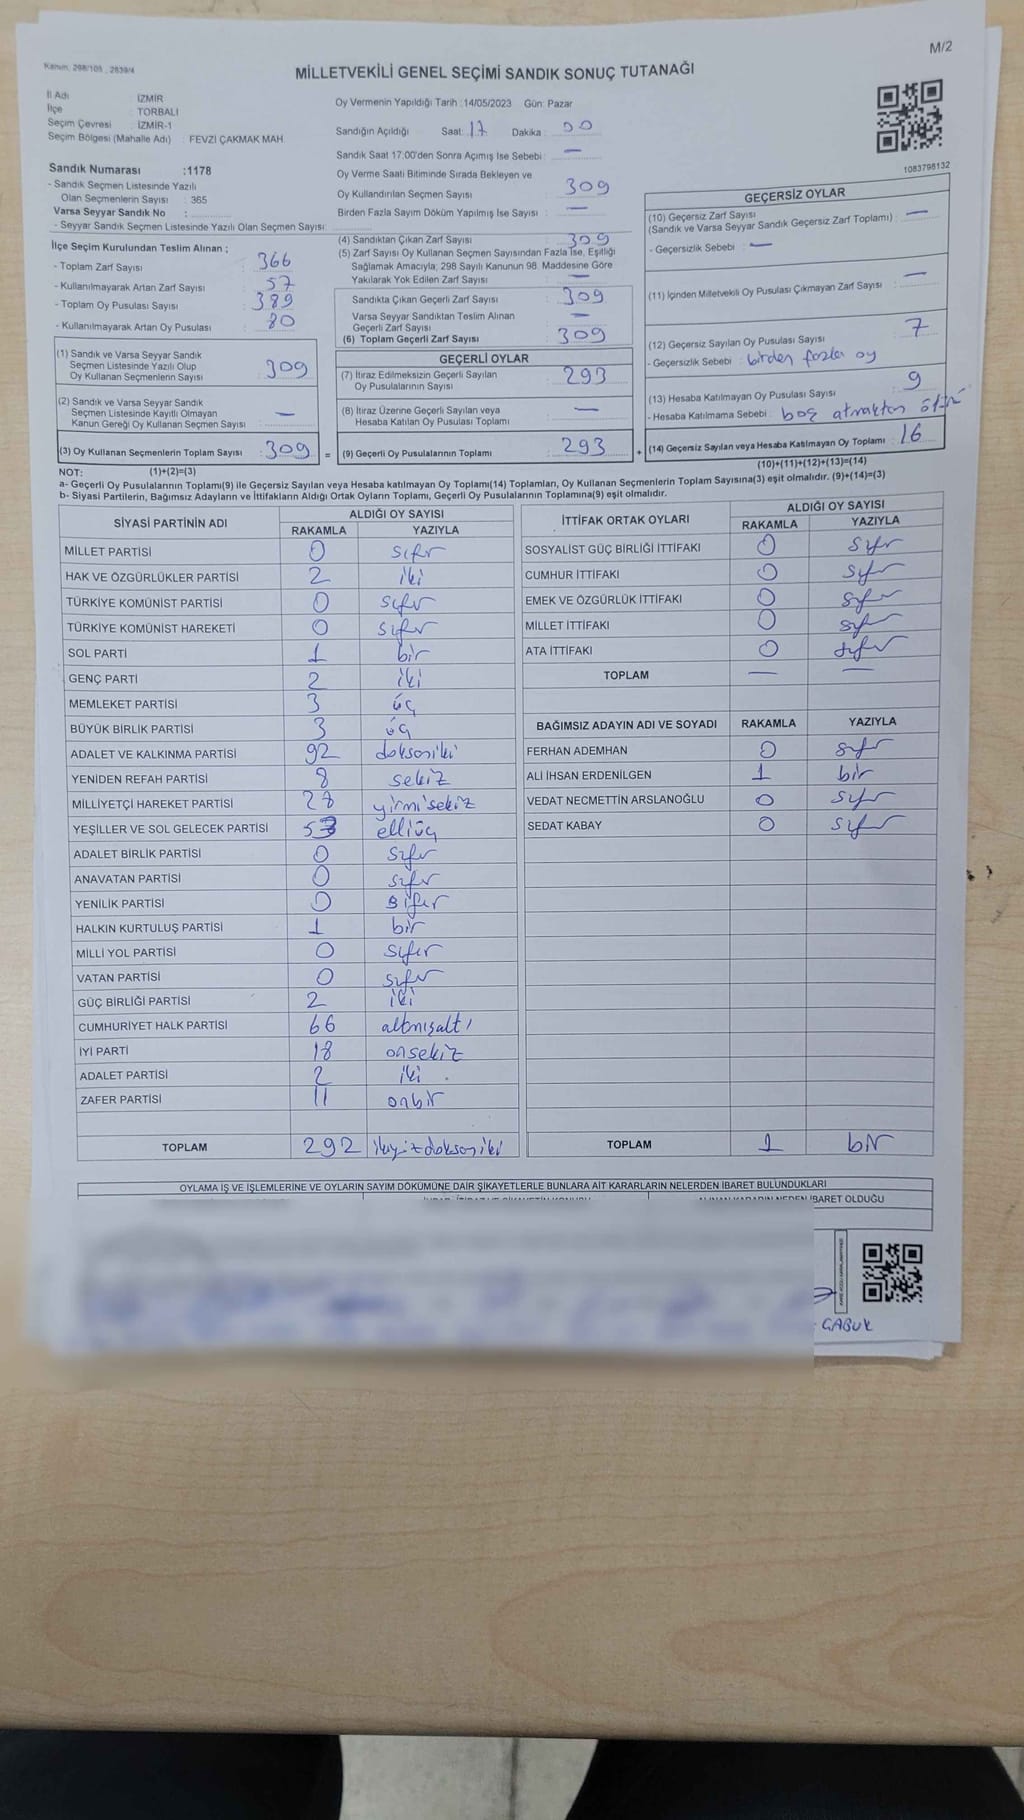 M/2
Kanun, 298/105 , 2839/4
MİLLETVEKİLİ GENEL SEÇİMİ SANDIK SONUÇ TUTANAĞI
İl Adı : İZMİR
İlçe : TORBALI
Seçim Çevresi : İZMİR-1
Seçim Bölgesi (Mahalle Adı) : FEVZİ ÇAKMAK MAH
Sandık Numarası :1178
- Sandık Seçmen Listesinde Yazılı
Olan Seçmenlerin Sayısı : 365
Varsa Seyyar Sandık No :
- Seyyar Sandık Seçmen Listesinde Yazılı Olan Seçmen Sayısı:
İlçe Seçim Kurulundan Teslim Alınan ;
- Toplam Zarf Sayısı : 366
- Kullanılmayarak Artan Zarf Sayısı : 57
- Toplam Oy Pusulası Sayısı : 389
- Kullanılmayarak Artan Oy Pusulası : 80
(1) Sandık ve Varsa Seyyar Sandık
Seçmen Listesinde Yazılı Olup
Oy Kullanan Seçmenlerin Sayısı : 309
(2) Sandık ve Varsa Seyyar Sandık
Seçmen Listesinde Kayıtlı Olmayan
Kanun Gereği Oy Kullanan Seçmen Sayısı : —
(3) Oy Kullanan Seçmenlerin Toplam Sayısı : 309 =
Oy Vermenin Yapıldığı Tarih :14/05/2023 Gün: Pazar
Sandığın Açıldığı Saat: 17 Dakika : 00
Sandık Saat 17:00'den Sonra Açımış İse Sebebi : —
Oy Verme Saati Bitiminde Sırada Bekleyen ve
Oy Kullandırılan Seçmen Sayısı : 309
Birden Fazla Sayım Döküm Yapılmış İse Sayısı : —
(4) Sandıktan Çıkan Zarf Sayısı : 309
(5) Zarf Sayısı Oy Kullanan Seçmen Sayısından Fazla İse, Eşitliği
Sağlamak Amacıyla, 298 Sayılı Kanunun 98. Maddesine Göre
Yakılarak Yok Edilen Zarf Sayısı : —
Sandıkta Çıkan Geçerli Zarf Sayısı : 309
Varsa Seyyar Sandıktan Teslim Alınan
Geçerli Zarf Sayısı : —
(6) Toplam Geçerli Zarf Sayısı : 309
GEÇERLİ OYLAR
(7) İtiraz Edilmeksizin Geçerli Sayılan
Oy Pusulalarının Sayısı : 293
(8) İtiraz Üzerine Geçerli Sayılan veya
Hesaba Katılan Oy Pusulası Toplamı : —
(9) Geçerli Oy Pusulalarının Toplamı : 293 +
1083796132
GEÇERSİZ OYLAR
(10) Geçersiz Zarf Sayısı : —
(Sandık ve Varsa Seyyar Sandık Geçersiz Zarf Toplamı)
- Geçersizlik Sebebi : —
(11) İçinden Milletvekili Oy Pusulası Çıkmayan Zarf Sayısı : —
(12) Geçersiz Sayılan Oy Pusulası Sayısı : 7
- Geçersizlik Sebebi : birden fazla oy
(13) Hesaba Katılmayan Oy Pusulası Sayısı : 9
- Hesaba Katılmama Sebebi : boş atmaktan ötürü
(14) Geçersiz Sayılan veya Hesaba Katılmayan Oy Toplamı : 16
NOT: (1)+(2)=(3) (10)+(11)+(12)+(13)=(14)
a- Geçerli Oy Pusulalarının Toplamı(9) ile Geçersiz Sayılan veya Hesaba katılmayan Oy Toplamı(14) Toplamları, Oy Kullanan Seçmenlerin Toplam Sayısına(3) eşit olmalıdır. (9)+(14)=(3)
b- Siyasi Partilerin, Bağımsız Adayların ve İttifakların Aldığı Ortak Oyların Toplamı, Geçerli Oy Pusulalarının Toplamına(9) eşit olmalıdır.
SİYASİ PARTİNİN ADI ALDIĞI OY SAYISI
RAKAMLA YAZIYLA
MİLLET PARTİSİ 0 sıfır
HAK VE ÖZGÜRLÜKLER PARTİSİ 2 iki
TÜRKİYE KOMÜNİST PARTİSİ 0 sıfır
TÜRKİYE KOMÜNİST HAREKETİ 0 sıfır
SOL PARTİ 1 bir
GENÇ PARTİ 2 iki
MEMLEKET PARTİSİ 3 üç
BÜYÜK BİRLİK PARTİSİ 3 üç
ADALET VE KALKINMA PARTİSİ 92 doksaniki
YENİDEN REFAH PARTİSİ 8 sekiz
MİLLİYETÇİ HAREKET PARTİSİ 28 yirmisekiz
YEŞİLLER VE SOL GELECEK PARTİSİ 53 elliüç
ADALET BİRLİK PARTİSİ 0 sıfır
ANAVATAN PARTİSİ 0 sıfır
YENİLİK PARTİSİ 0 sıfır
HALKIN KURTULUŞ PARTİSİ 1 bir
MİLLİ YOL PARTİSİ 0 sıfır
VATAN PARTİSİ 0 sıfır
GÜÇ BİRLİĞİ PARTİSİ 2 iki
CUMHURİYET HALK PARTİSİ 66 altmışaltı
İYİ PARTİ 18 onsekiz
ADALET PARTİSİ 2 iki
ZAFER PARTİSİ 11 onbir
TOPLAM 292 ikiyüzdoksaniki
İTTİFAK ORTAK OYLARI ALDIĞI OY SAYISI
RAKAMLA YAZIYLA
SOSYALİST GÜÇ BİRLİĞİ İTTİFAKI 0 sıfır
CUMHUR İTTİFAKI 0 sıfır
EMEK VE ÖZGÜRLÜK İTTİFAKI 0 sıfır
MİLLET İTTİFAKI 0 sıfır
ATA İTTİFAKI 0 sıfır
TOPLAM — —
BAĞIMSIZ ADAYIN ADI VE SOYADI RAKAMLA YAZIYLA
FERHAN ADEMHAN 0 sıfır
ALİ İHSAN ERDENİLGEN 1 bir
VEDAT NECMETTİN ARSLANOĞLU 0 sıfır
SEDAT KABAY 0 sıfır
TOPLAM 1 bir
OYLAMA İŞ VE İŞLEMLERİNE VE OYLARIN SAYIM DÖKÜMÜNE DAİR ŞİKAYETLERLE BUNLARA AİT KARARLARIN NELERDEN İBARET BULUNDUKLARI
İBARET OLDUĞU
GABUK